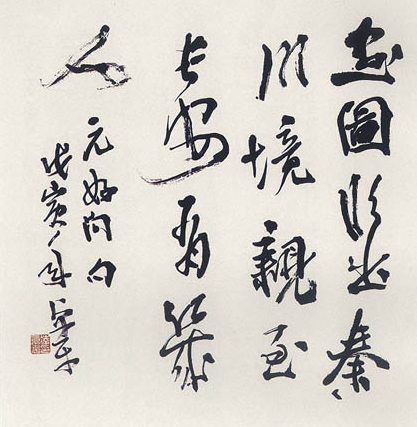 畫圖臨出秦
川境親至
長安有幾
人
元好问句
戊寅年